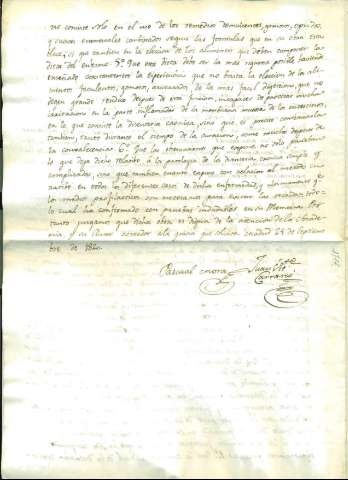 no consiste solo en el uso de los remedios demulcentes, gomosos, opiados,
y suaves emenciales combinados segun las formulas que en su obra esta-
blece, si que tambien en la eleccion de los alimentos que deben componer la
dieta del enfermo 5º Que esta dieta debe ser la mas rigurosa posible, haviendo
enseñado constantemente la esperiencia que no basta la eleccion de los ali-
mentos feculentos, gomosos, azucarados, de la mas facil digestion, que no
dejen grande residuo despues de esta funcion, incapaces de provocar mucha
aspiracion en la parte inflamada de la membrana mucosa de los intestinos,
en la que consiste la disenteria cronica, sino que es preciso continuarla
tambien, tanto durante el tiempo de la curacion, como mucho despues de
la convalecencia 6º Que las observaciones que expone no solo prueban
lo que deja dicho relativo a la patologia de la disenteria cronica simple y
complicada, sino que tambien cuanto expuso con relacion al metodo cu-
rativo en todos los diferentes casos de dicha enfermedad, y ultimamente que
los medios profilacticos son necesarios para evitar las recaidas, todo
lo cual ha confirmado con pruebas indudables en su Memoria. Por
tanto juzgamos que dicha obra es digna de la atencion de la Acade-
mia, y su Autor acreedor a la gracia que solicita. Madrid 24 de Septiem-
bre de 1840.
Pascual Mora
Juan Vte
Carrasco